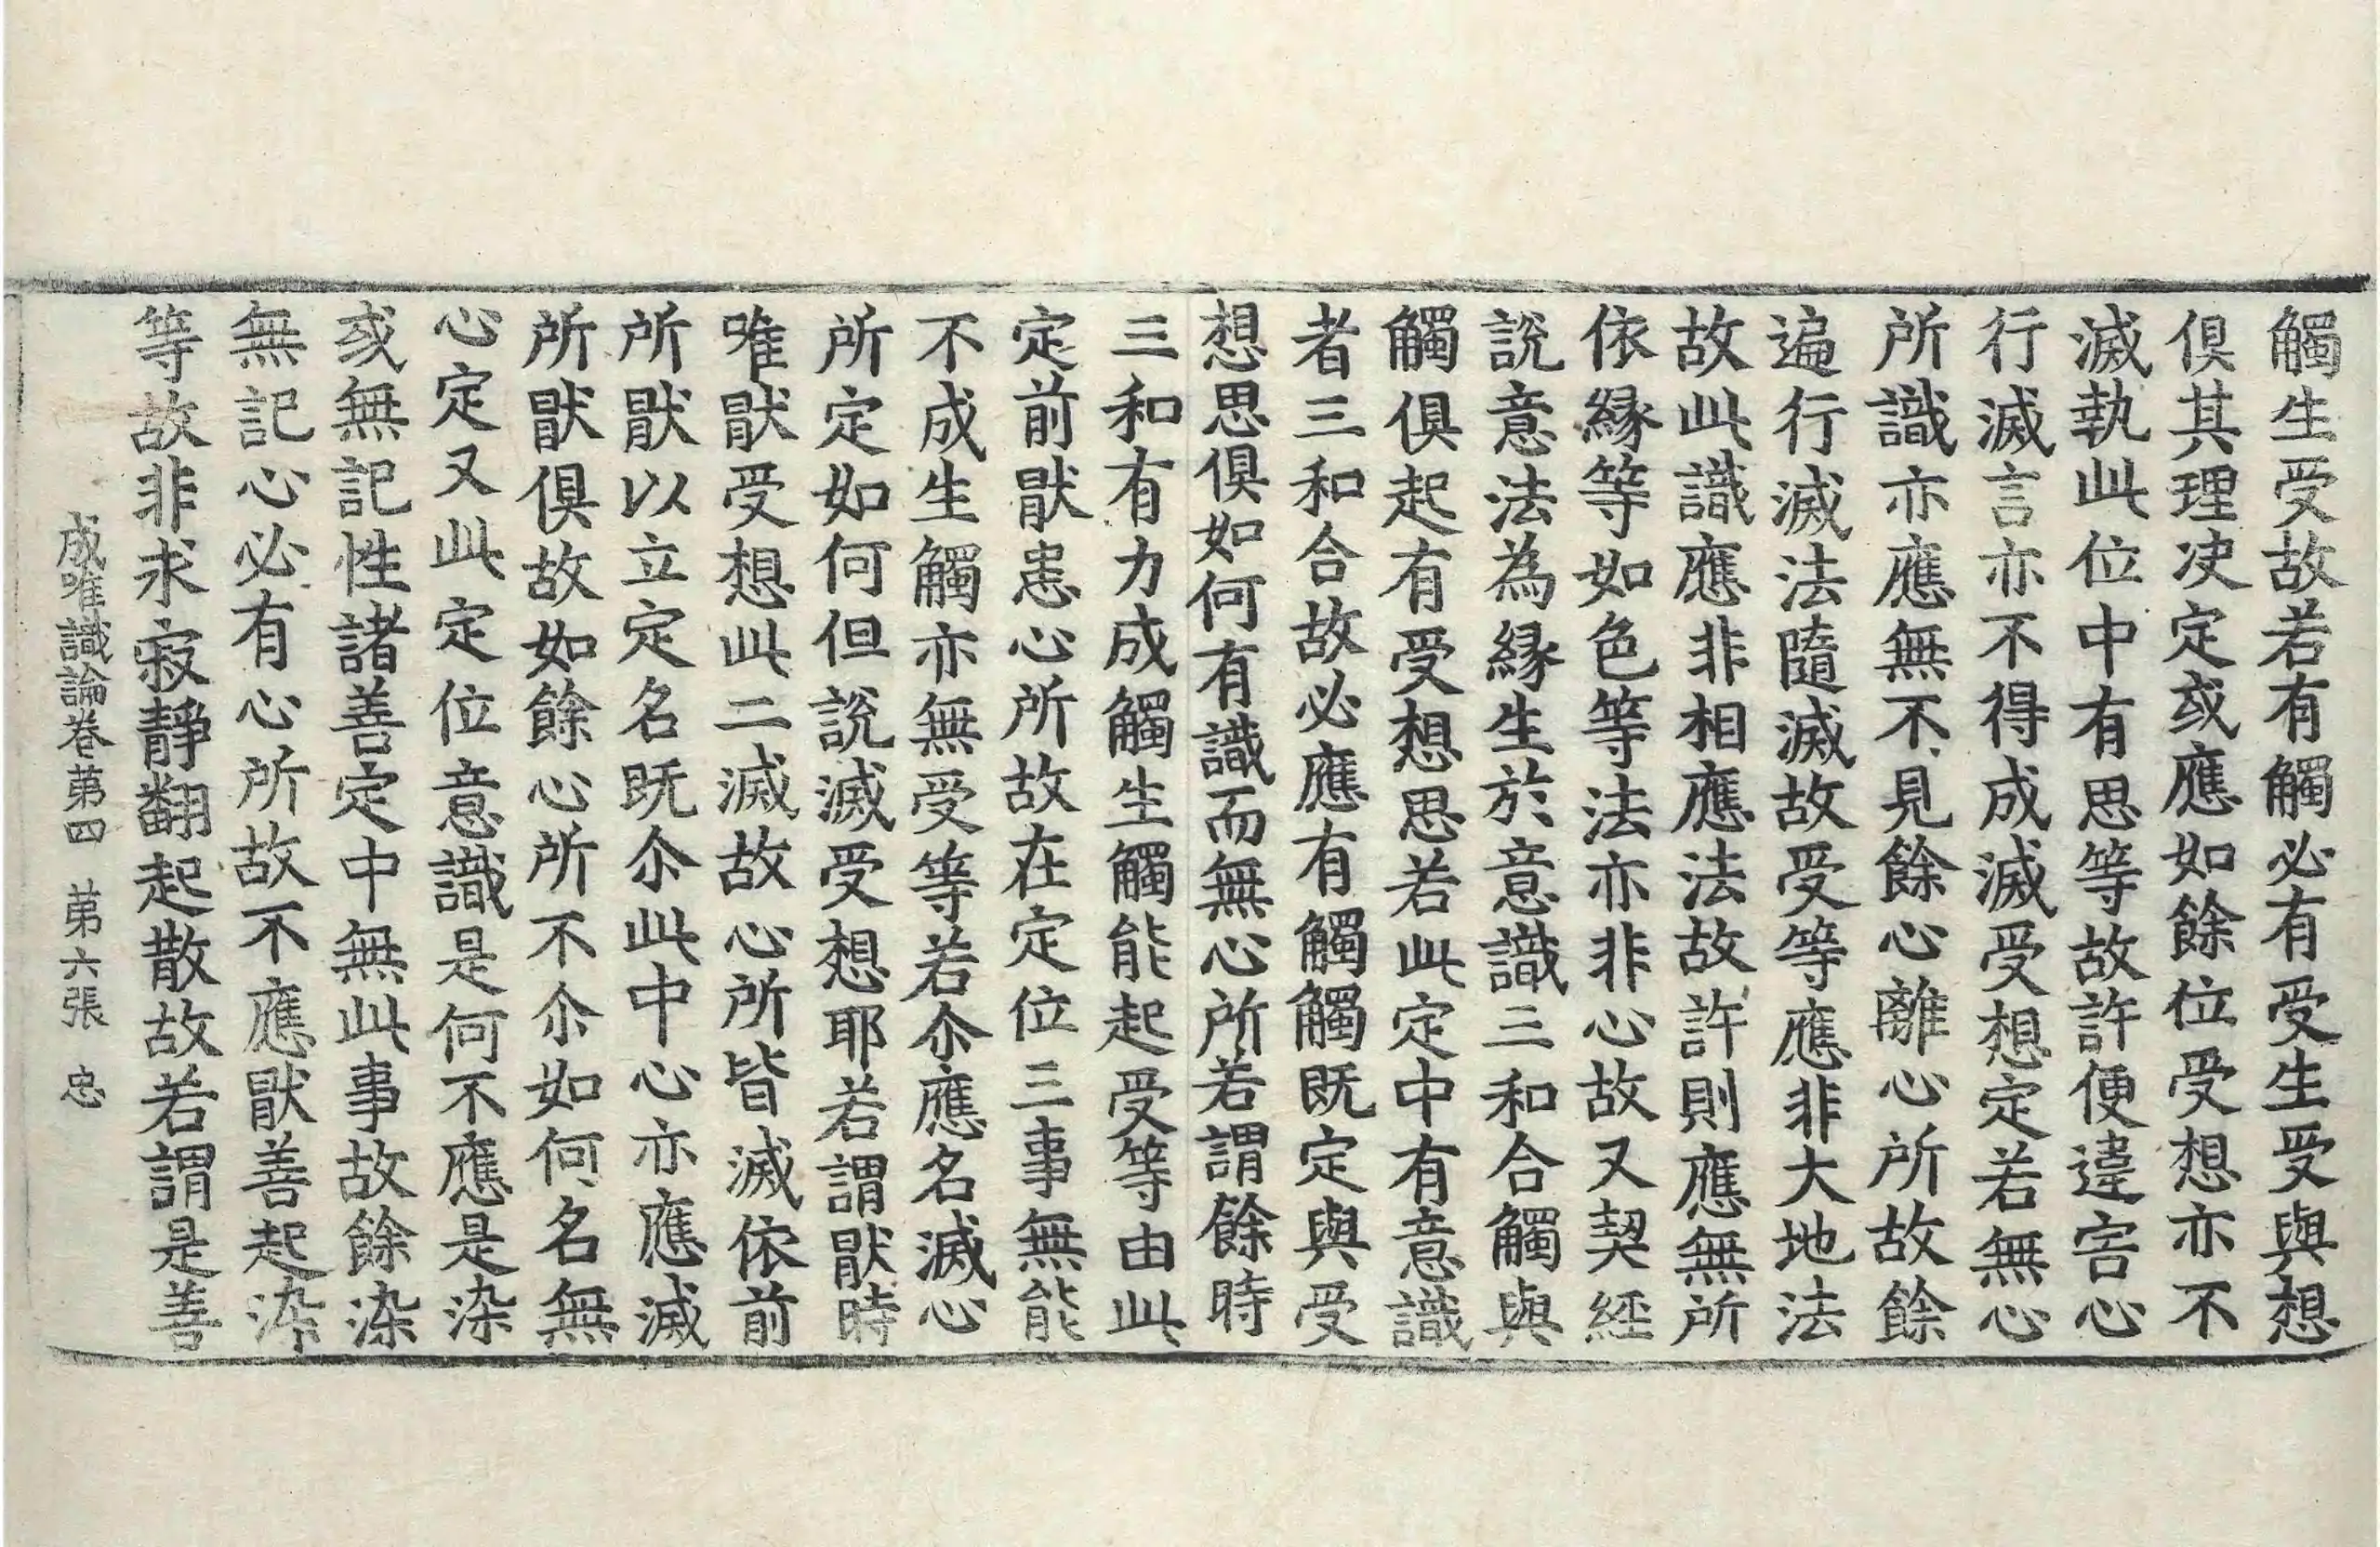 觸生受故若有觸必有受生受與想
俱其理决定或應如餘位受想亦不
滅執此位中有思等故許便違害心
行滅言亦不得成滅受想定若無心
所識亦應無不見餘心離心所故餘
遍行滅法隨滅故受等應非大地法
故此識應非相應法故許則應無所
依緣等如色等法亦非心故又契經
說意法為緣生於意識三和合觸與
觸俱起有受想思若此定中有意識
者三和合故必應有觸觸既定與受
想思俱如何有識而無心所若謂餘時
三和有力成觸生觸能起受等由此
定前猒恚心所故在定位三事無能
不成生觸亦無受等若尒應名滅心
所定如何但說滅受想耶若謂猒時
唯猒受想此二滅故心所皆滅依前
所猒以立定名既尒此中心亦應滅
所猒俱故如餘心所不尒如何名無
心定又此定位意識是何不應是染
或無記性諸善定中無此事故餘染
無記心必有心所故不應猒善起染
等故非求寂靜翻起散故若謂是善
成唯識論卷苐四 苐六張 忠